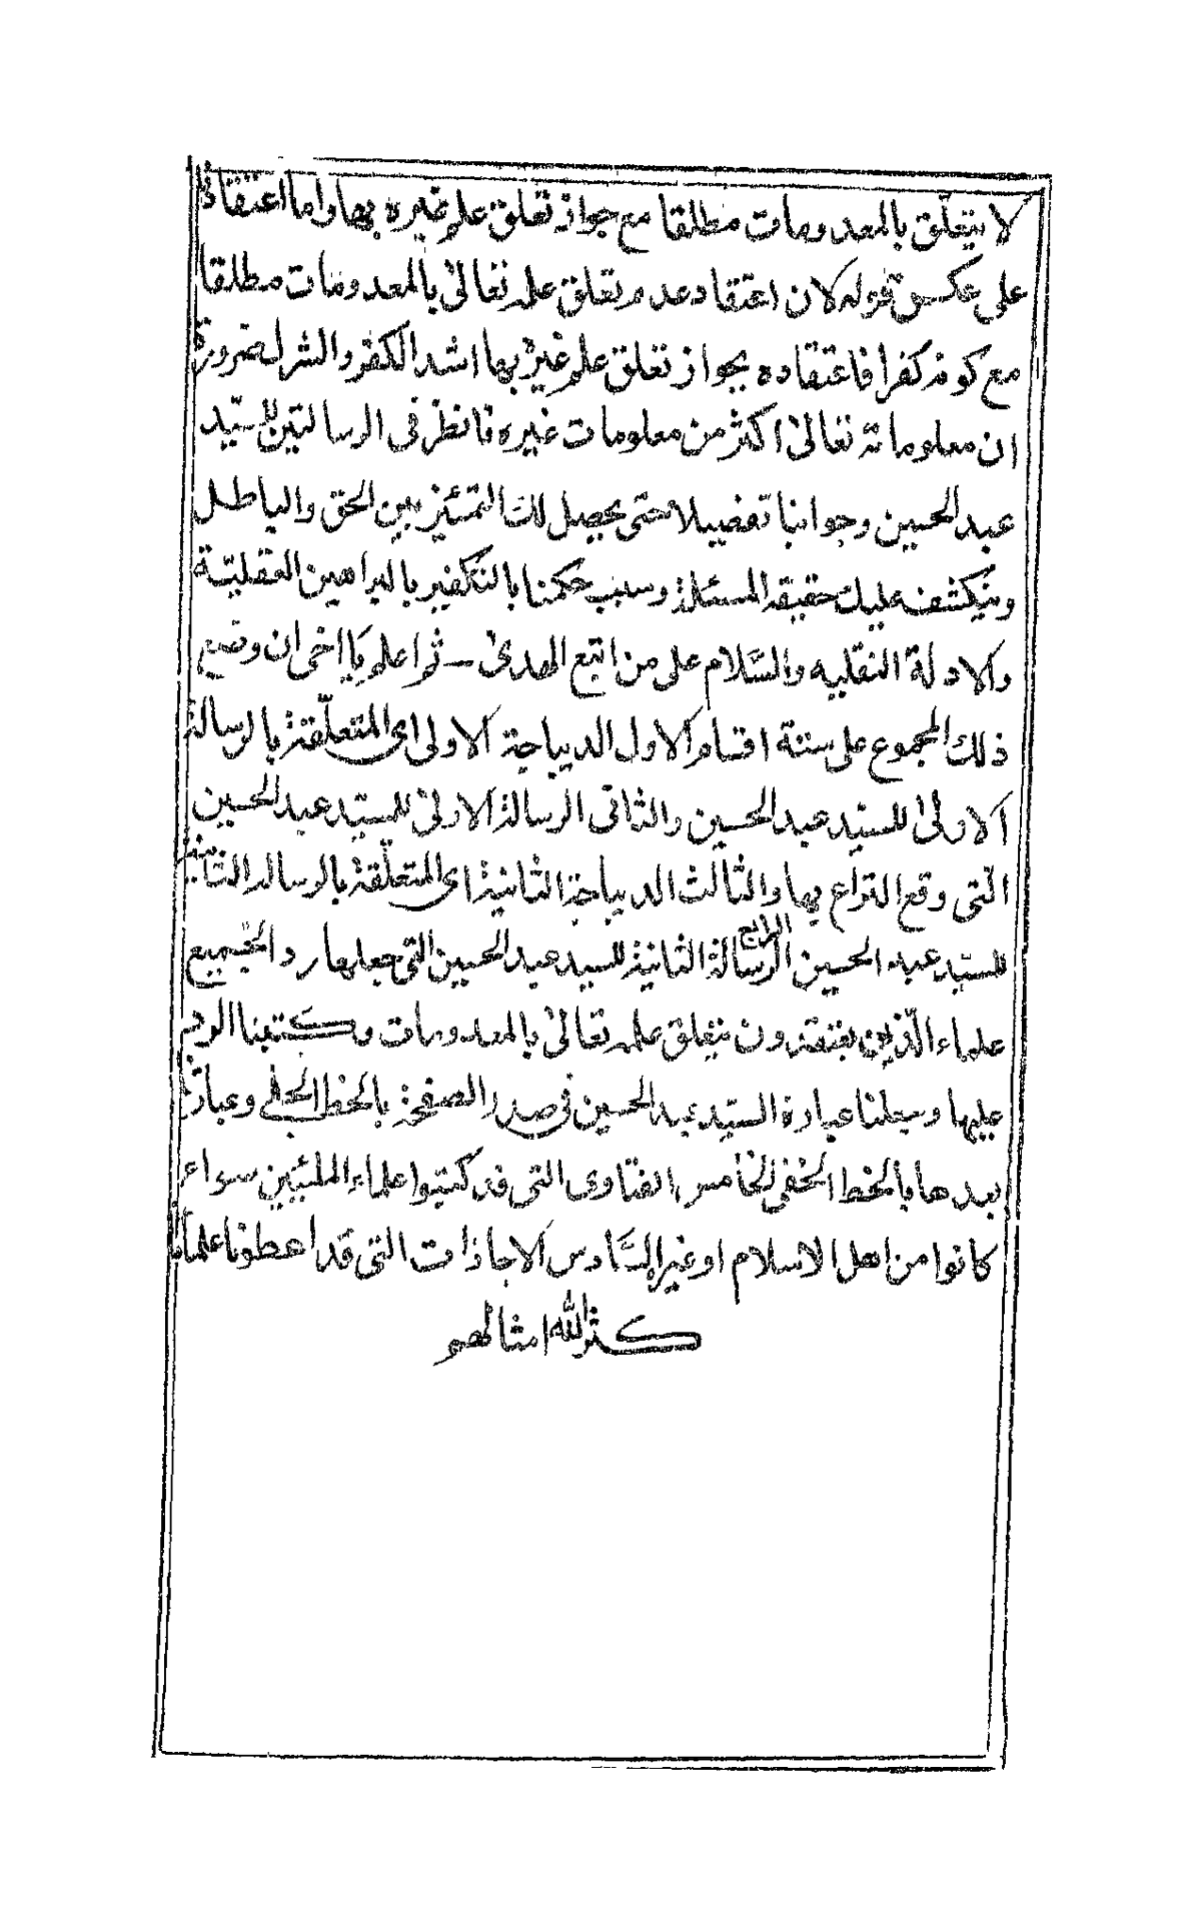 لا يتعلّق بالمعدومات مطلقا مع جواز تعلق علم غيره بها واما اعتقادنا
على عكس قوله لان اعتقاد عدم تعلق علمه تعالىٰ بالمعدومات مطلقا
مع كونه كفرا فاعتقاده بجواز تعلق علم غيره بها اشد الكفر والشرك ضرورة
ان معلوماته تعالىٰ اكثر من معلومات غيره فانظر فى الرسالتين للسيّد
عبد الحسين وجوابنا تفصيلا حتى يحصل لك التمئيز بين الحق والباطل
وينكشف عليك حقيقة المسئلة وسبب حكمنا بالتكفير بالبراهين العقليّة
والادلة النقليه والسَّلام على من اتبع الهدىٰ – ثم اعلم يا اخى ان وضع
ذلك المجموع على ستة اقسام الاول الديباجة الاولى اى المتعلّقة بالرسالة
الاولىٰ للسيّد عبد الحسين والثانى الرسالة الاولىٰ للسيّد عبد الحسين
الّتى وقع النزاع بها والثالث الديباجة الثانية اى المتعلّقة بالرسالة الثانية
للسيّد عبد الحسين الرابع الرسالة الثانية للسيد عبد الحسين التى جعلها رد الجميع
علماء الّذين يعتقدون بتعلق علمه تعالىٰ بالمعدومات وكتبنا الرد
عليها وجعلنا عبارة السيّد عبد الحسين فى صدر الصفحة بالخط الجلى وعبارتنا
بعدها بالخط الخفى الخامس الفتاوى التى قد كتبوا علماء المليين سواء
كانوا من اهل الاسلام او غيره السَّادس الاجاذات التى قد اعطونا علمائنا
كثر الله امثالهم